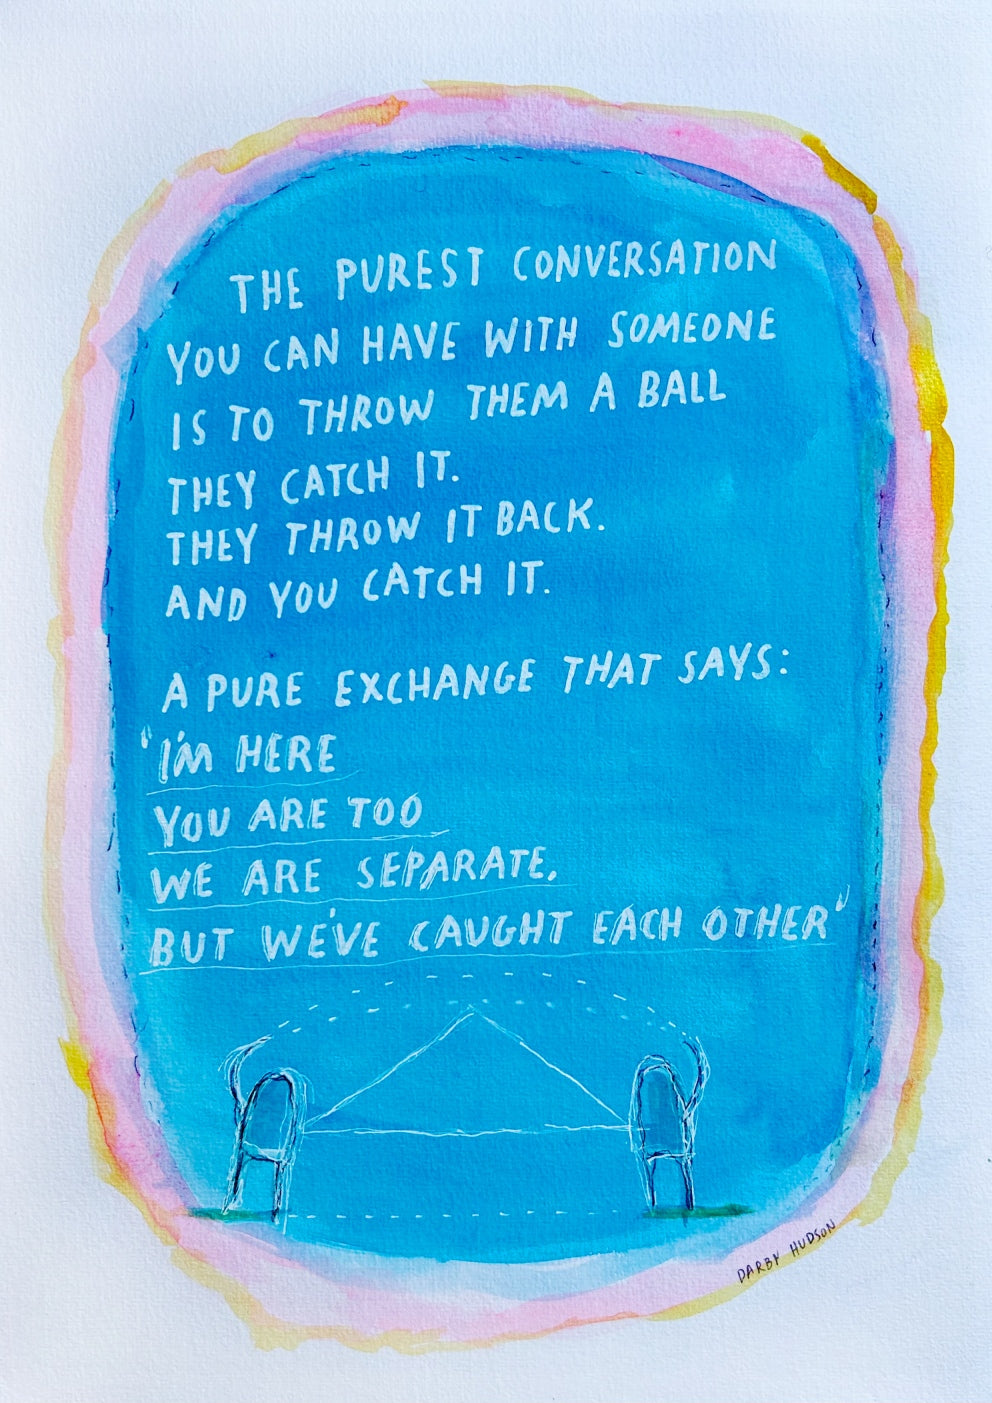 THE PUREST CONVERSATION
YOU CAN HAVE WITH SOMEONE
IS TO THROW THEM A BALL
THEY CATCH IT.
THEY THROW IT BACK.
AND YOU CATCH IT.
A PURE EXCHANGE THAT SAYS:
'I'M HERE
YOU ARE TOO
WE ARE SEPARATE,
BUT WE'VE CAUGHT EACH OTHER'
DARBY HUDSON